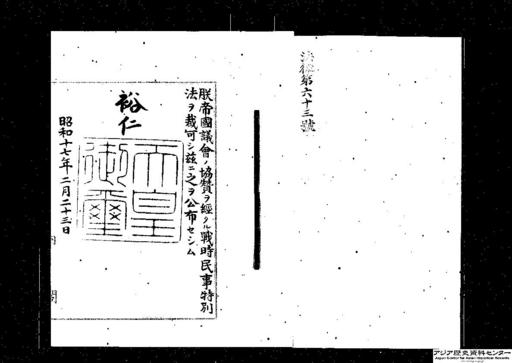 法律第六十三號
朕帝國議會ノ協贊ヲ經タル戰時民事特別
法ヲ裁可シ茲ニ之ヲ公布セシム
裕仁
天皇
御璽
昭和十七年二月二十三日
内閣
アジア歴史資料センター
Japan Center for Asian Historical Records